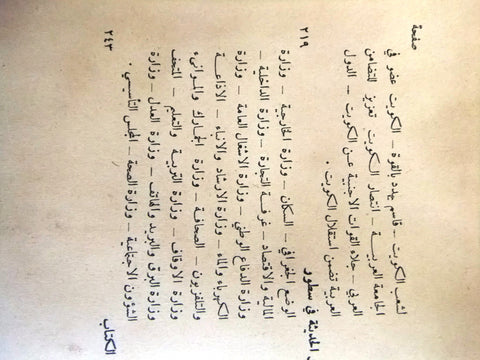 صفحة
لشعب الكويت - قاسم يهدد بالقوة - الكويت عضو في
الجامعة العربية - انتصار الكويت تعزيز للتضامن
العربي - جلاء القوات الاجنبية عن الكويت - الدول
العربية تضمن استقلال الكويت .
الحديثة في سطور ٢١٩
الوضع الجغرافي - السكان - وزارة الخارجية - وزارة
المالية والاقتصاد - غرفة التجارة - وزارة الداخلية -
وزارة الدفاع الوطني - وزارة الاشغال العامة - وزارة
الكهرباء والماء - وزارة الارشاد والانباء - الاذاعة
والتلفزيون - الصحافة - وزارة الجمارك والموانىء
وزارة الاوقاف - وزارة التربية والتعليم - المتحف
وزارة البرق والبريد والهاتف - وزارة العدل - وزارة
الشؤون الاجتماعية - وزارة الصحة - المجلس التأسيسي .
الكتاب ٢٤٣